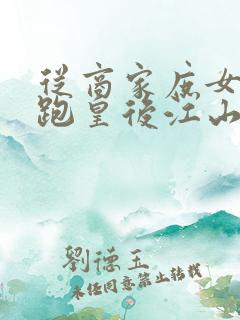 從商家庶女
跑皇後江山
劉德玉
未經同意禁止轉載